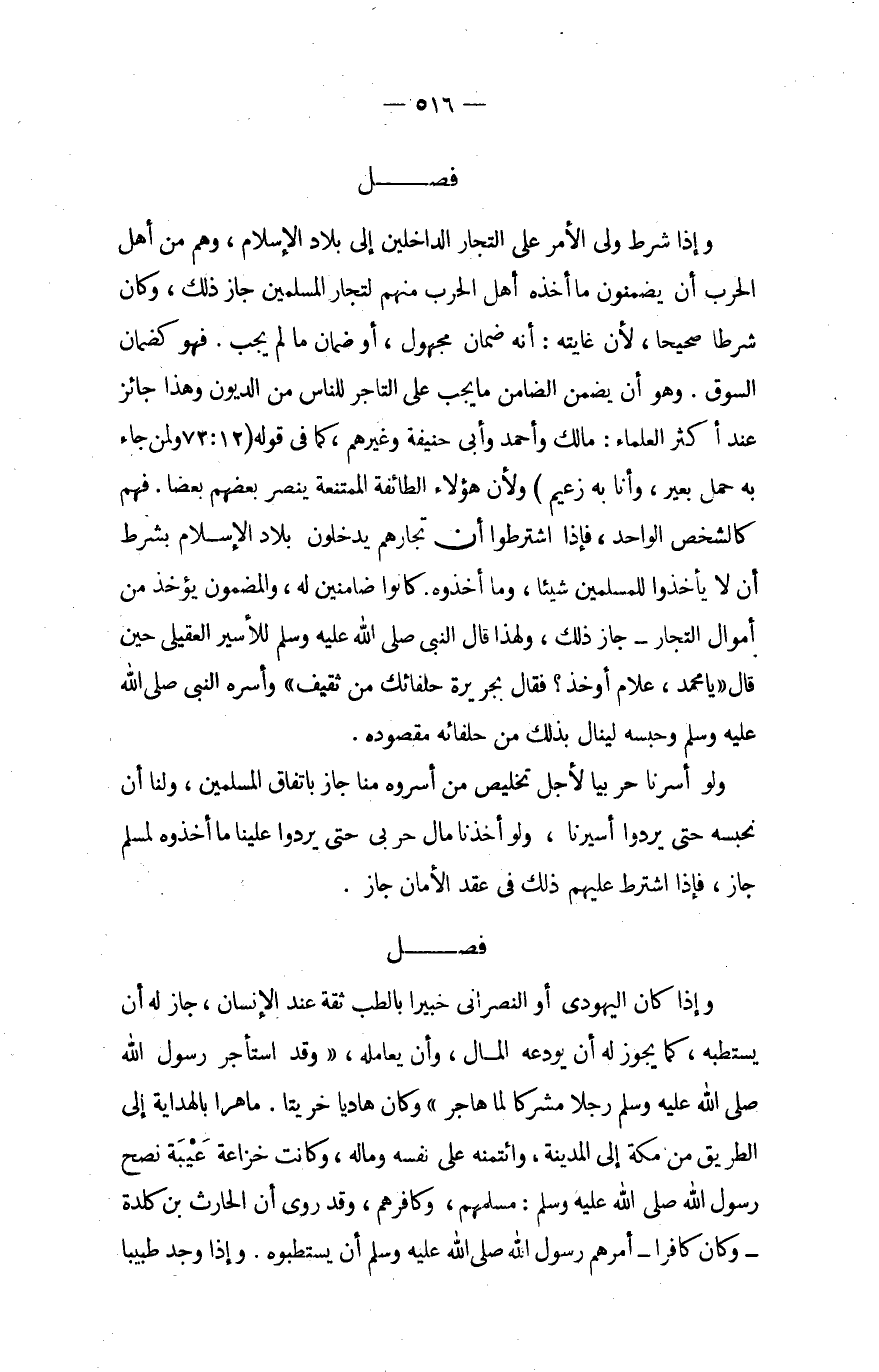 — ٥١٦ —
فصـــــــل
وإذا شرط ولى الأمر على التجار الداخلين إلى بلاد الإسلام ، وهم من أهل
الحرب أن يضمنون ما أخذه أهل الحرب منهم لتجار المسلمين جاز ذلك ، وكان
شرطا صحيحا ، لأن غايته : أنه ضمان مجهول ، أو ضمان ما لم يجب . فهو كضمان
السوق . وهو أن يضمن الضامن مايجب على التاجر للناس من الديون وهذا جائز
عند أكثر العلماء : مالك وأحمد وأبى حنيفة وغيرهم ،كما فى قوله(٧٣:١٢ولمن جاء
به حمل بعير ، وأنا به زعيم ) ولأن هؤلاء الطائفة الممتنعة ينصر بعضهم بعضا . فهم
كالشخص الواحد ، فإذا اشترطوا أن تجارهم يدخلون بلاد الإسلام بشرط
أن لا يأخذوا للمسلمين شيئا ، وما أخذوه.كانوا ضامنين له ، والمضمون يؤخذ من
أموال التجار ـ جاز ذلك ، ولهذا قال النبى صلى الله عليه وسلم للأسير العقيلى حين
قال«يامحمد ، علام أوخذ ؟ فقال بجريرة حلفائك من ثقيف» وأسره النبى صلى الله
عليه وسلم وحبسه لينال بذلك من حلفائه مقصوده .
ولو أسرنا حربيا لأجل تخليص من أسروه منا جاز باتفاق المسلمين ، ولنا أن
نحبسه حتى يردوا أسيرنا ، ولو أخذنا مال حربى حتى يردوا علينا ما أخذوه لمسلم
جاز ، فإذا اشترط عليهم ذلك فى عقد الأمان جاز .
فصـــــــل
وإذا كان اليهودى أو النصرانى خبيرا بالطب ثقة عند الإنسان ، جاز له أن
يستطبه ، كما يجوز له أن يودعه المـال ، وأن يعامله ، « وقد استأجر رسول الله
صلى الله عليه وسلم رجلا مشركا لما هاجر » وكان هاديا خريتا . ماهرا بالهداية إلى
الطريق من مكة إلى المدينة ، وائتمنه على نفسه وماله ، وكانت خزاعة عَيْبَة نصح
رسول الله صلى الله عليه وسلم : مسلمهم ، وكافرهم ، وقد روى أن الحارث بن كلدة
ـ وكان كافرا ـ أمرهم رسول الله صلى الله عليه وسلم أن يستطبوه . وإذا وجد طبيبا